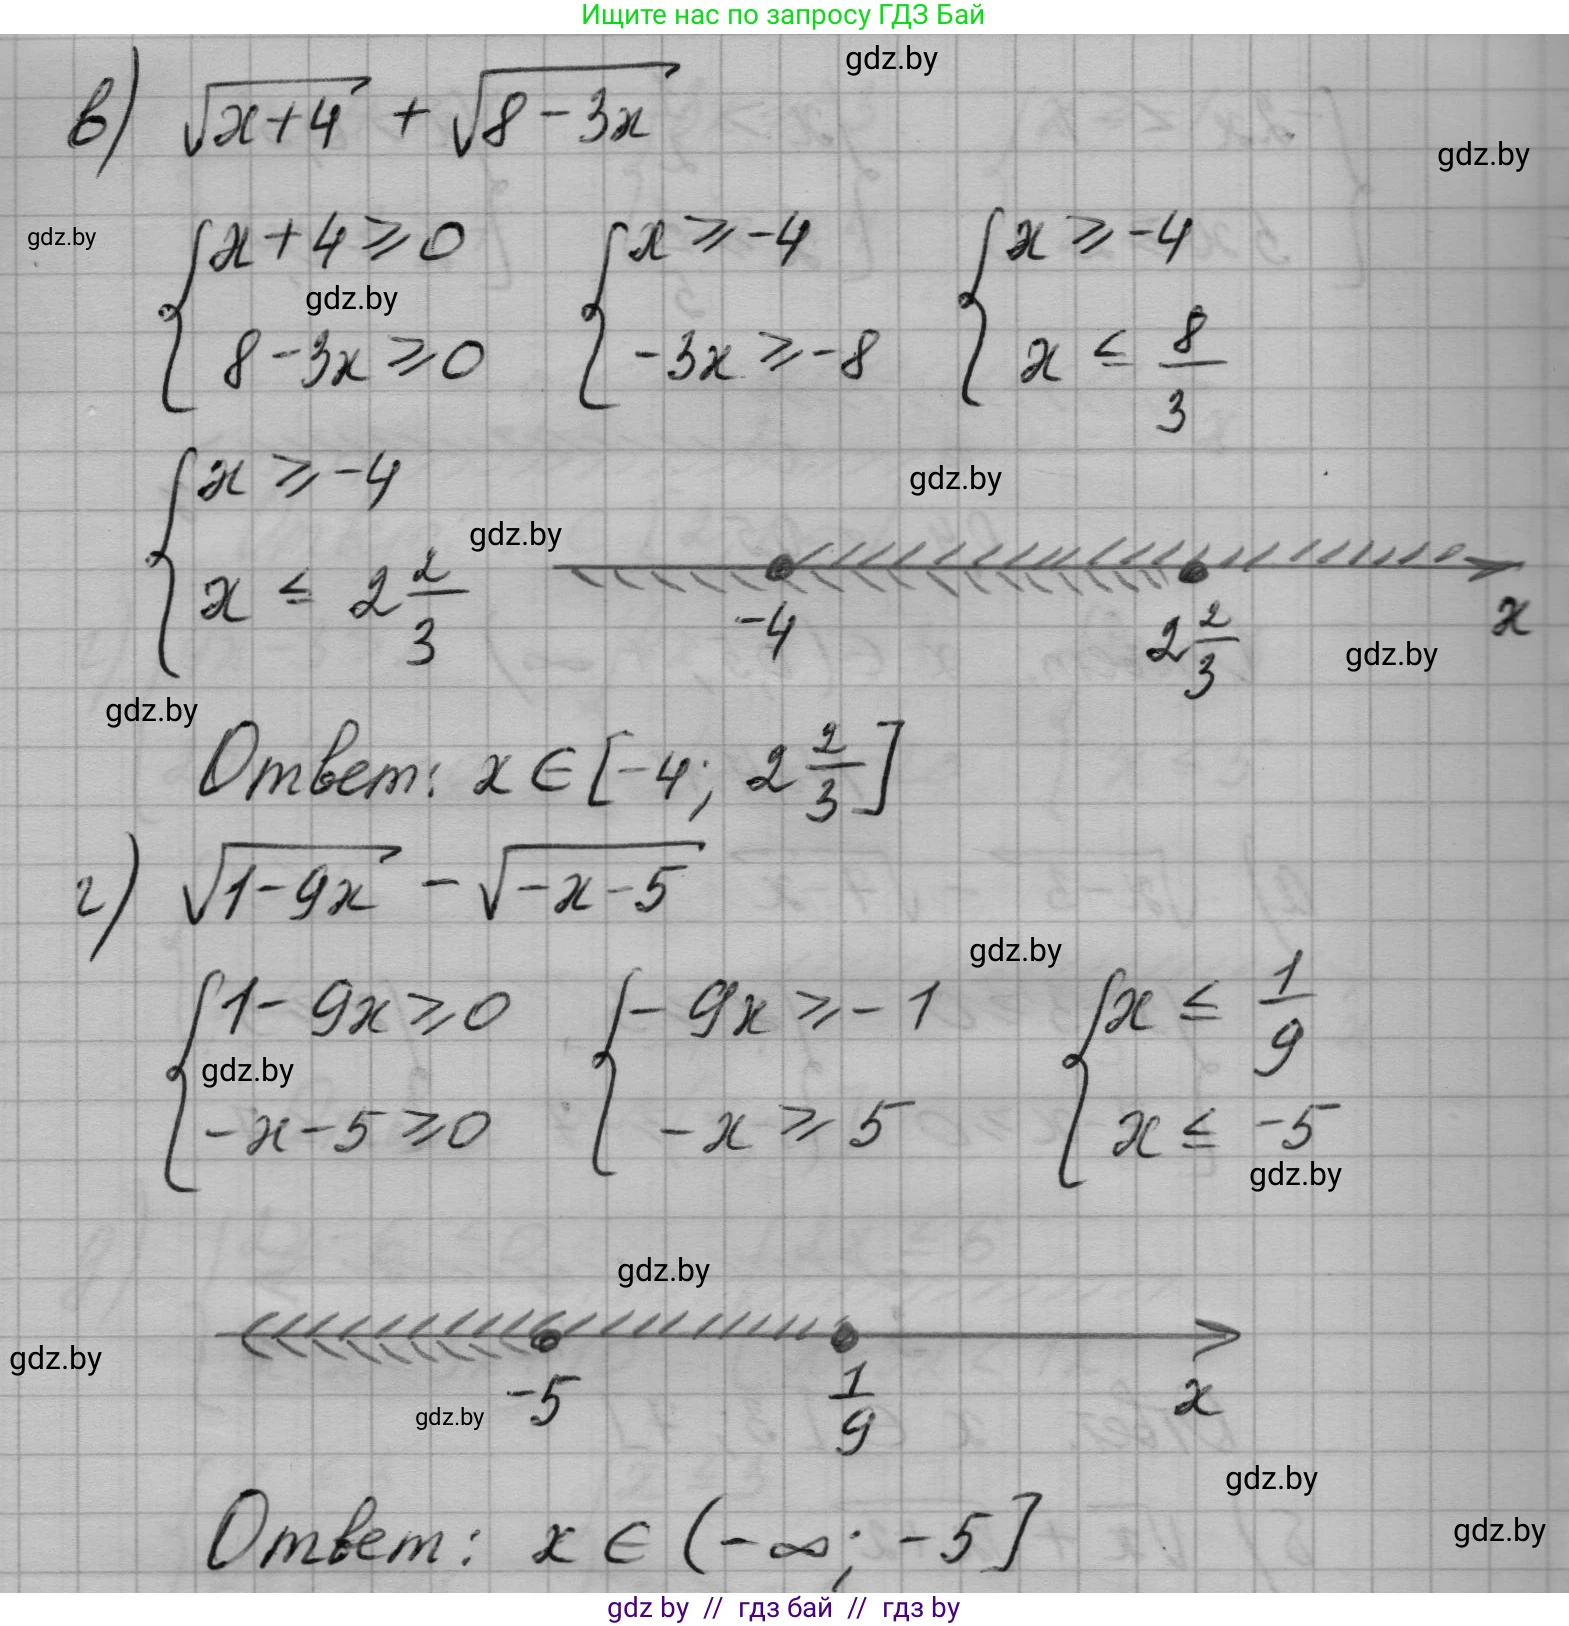 Ищите нас по запросу ГДЗ Бай
gdz.by
в) √(x+4) + √(8-3x)
gdz.by
gdz.by
{x+4⩾0 {x⩾-4 {x⩾-4
gdz.by
8-3x⩾0 -3x⩾-8 x≤8/3
{x⩾-4
gdz.by
gdz.by
x≤2 2/3
-4 2 2/3 x
gdz.by
gdz.by
Ответ: x∈[-4; 2 2/3]
г) √(1-9x) - √(-x-5)
gdz.by
{1-9x⩾0 {-9x⩾-1 {x≤1/9
gdz.by
-x-5⩾0 -x⩾5 x≤-5
gdz.by
gdz.by
gdz.by
-5 1/9 x
gdz.by
gdz.by
Ответ: x∈(-∞; -5]
gdz.by
gdz by // гдз бай // гдз by